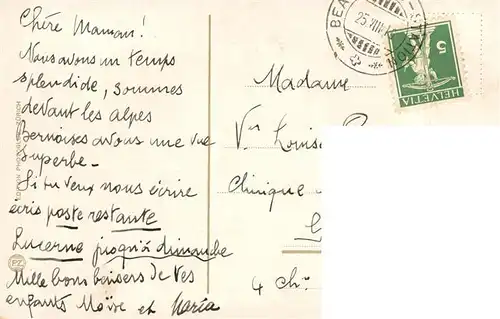 Chère Maman!
Nous avons un temps
splendide, sommes
devant les alpes
Bernoises avons une vue
superbe -
Si tu veux nous écrire
écris poste restante
Lucerne jusqu'à dimanche
Mille bons baisers de tes
enfants Moïse et Maria
Madame
Vve Louise
Clinique
4 Ch
BEA
25.VIII
HELVETIA
5
PZ